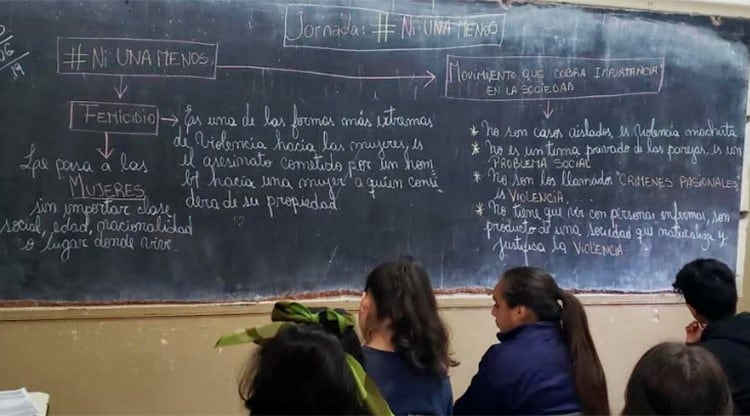 06
19
Jornada: # Ni UNA MENOS
# Ni UNA MENOS
MOVIMIENTO QUE COBRA IMPORTANCIA
EN LA SOCIEDAD
FEMICIDIO
Es una de las formas más extremas
de violencia hacia las mujeres, es
el asesinato cometido por un hom
bre hacía una mujer a quien consi
dera de su propiedad
Le pasa a las
MUJERES
sin importar clase
social, edad, nacionalidad
o lugar donde vive.
* No son casos aislados, es violencia machista
* no es un tema privado de las parejas, es un
PROBLEMA SOCIAL
* No son los llamados "CRIMENES PASIONALES"
es VIOLENCIA
* No tiene que ver con personas enfermas, son
producto de una sociedad que naturaliza y
justifica la VIOLENCIA